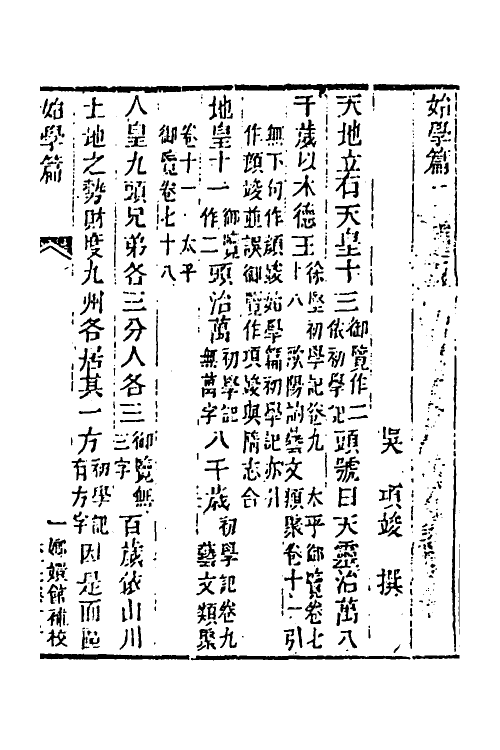 始學篇
吳 項竣 撰
天地立有天皇十三御覽作二依初學記頭號曰天靈治萬八
千歲以木德王徐堅初學記卷九 太平御覽卷七十八 歐陽詢藝文類聚卷十一引
無下句作顔竣始學篇初學記亦引
作顔竣並誤御覽作項竣與隋志合
地皇十一御覽作二頭治萬初學記無萬字八千歲初學記卷九 藝文類聚
卷十一 太平
御覽卷七十八
人皇九頭兄弟各三分人各三御覽無三字百歲依山川
土地之勢財度九州各居其一方初學記有方字因是而區
始學篇 一 嫏嬛館補校